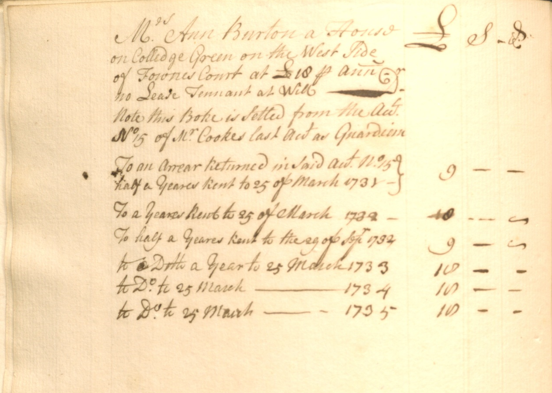 Mrs Ann Burton a House £ S - D
on Collidge Green on the West Side
of Fownes Court at £18 p Ann
no Lease Tennant at Will
Note this Boke is Setled from the Act.
No. 5 of Mr. Cookes last Act as Guardian
To an Arrear Returned in said Act. No. 5
half a Yeares Rent to 25 of March 1731 - 9 - -
To a Yeares Rent to 25 of March 1732 - 18 - -
To half a Yeares Rent to the 29 of Sepr. 1732 9 - -
to Ditto a Year to 25 March 1733 18 - -
to Do. to 25 March 1734 18 - -
to Do. to 25 March - 1735 18 - -